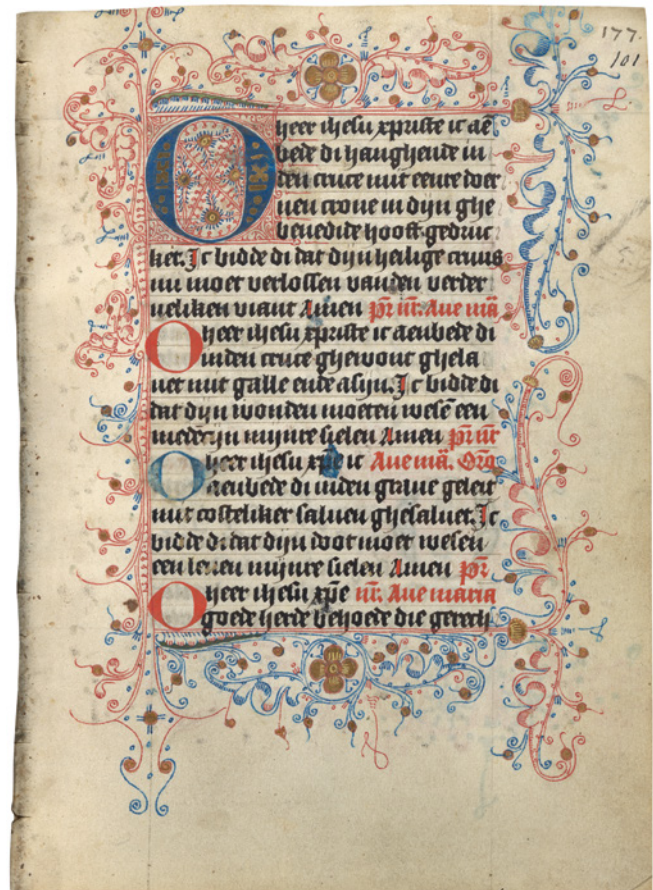 177.
101
O heer ihesu xpriste ic aē
bede di hanghende in
den cruce mit eenre doer
nen crone in dijn ghe
benedide hooft gedruc
ket. Ic bidde di dat dijn heilige cruus
mi moet verlossen van den verder
neliken viant Amen pr̄ nr̄. Aue mā
O heer ihesu xpriste ic aenbede di
inden cruce ghewont ghela
uet mit galle ende asijn. Ic bidde di
dat dijn wonden moeten wesē een
medecijn mijnre sielen Amen pr̄ nr̄
O heer ihesu xp̄e ic Aue mā. Orō
aenbede di inden graue geleit
mit costeliker saluen ghesaluet. Ic
bidde di dat dijn doot moet wesen
een leuen mijnre sielen Amen pr̄
O heer ihesu xp̄e nr̄. Aue maria
goede herde behoede die gerech